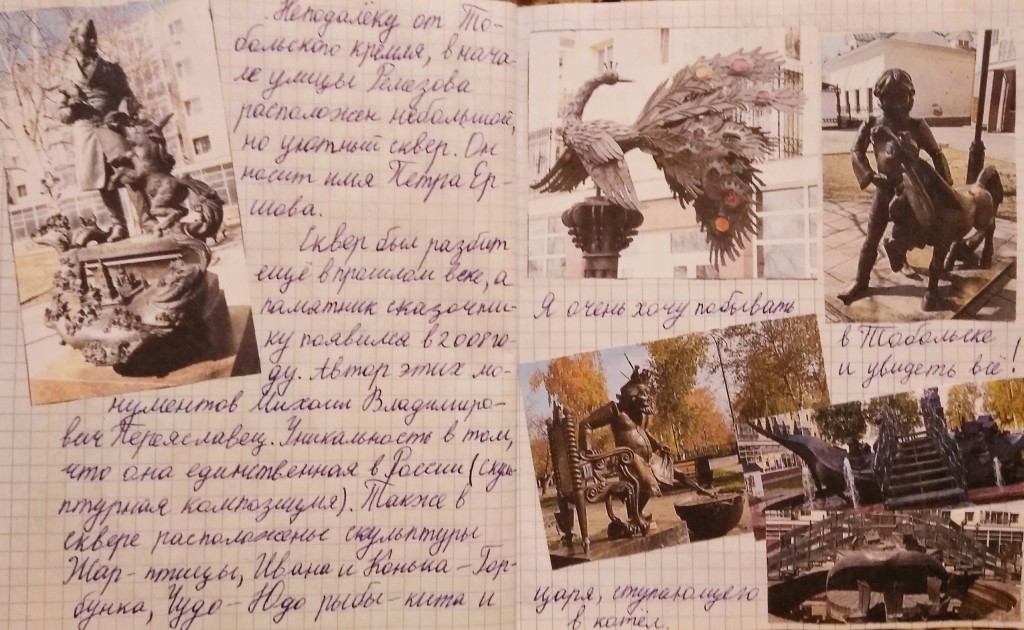 Неподалёку от То-
больского кремля, в нача-
ле улицы Ремезова
расположен небольшой,
но уютный сквер. Он
носит имя Петра Ер-
шова.
Сквер был разбит
ещё в прошлом веке, а
памятник сказочни-
ку появился в 2008 го-
ду. Автор этих мо-
нументов Михаил Владимиро-
вич Переяславец. Уникальность в том,
что она единственная в России (скуль-
птурная композиция). Также в
сквере расположены скульптуры
Жар-птицы, Ивана и Конька-Гор-
бунка, Чудо-Юдо рыбы-кита и
царя, ступающего
в котёл.
Я очень хочу побывать
в Тобольске
и увидеть всё!